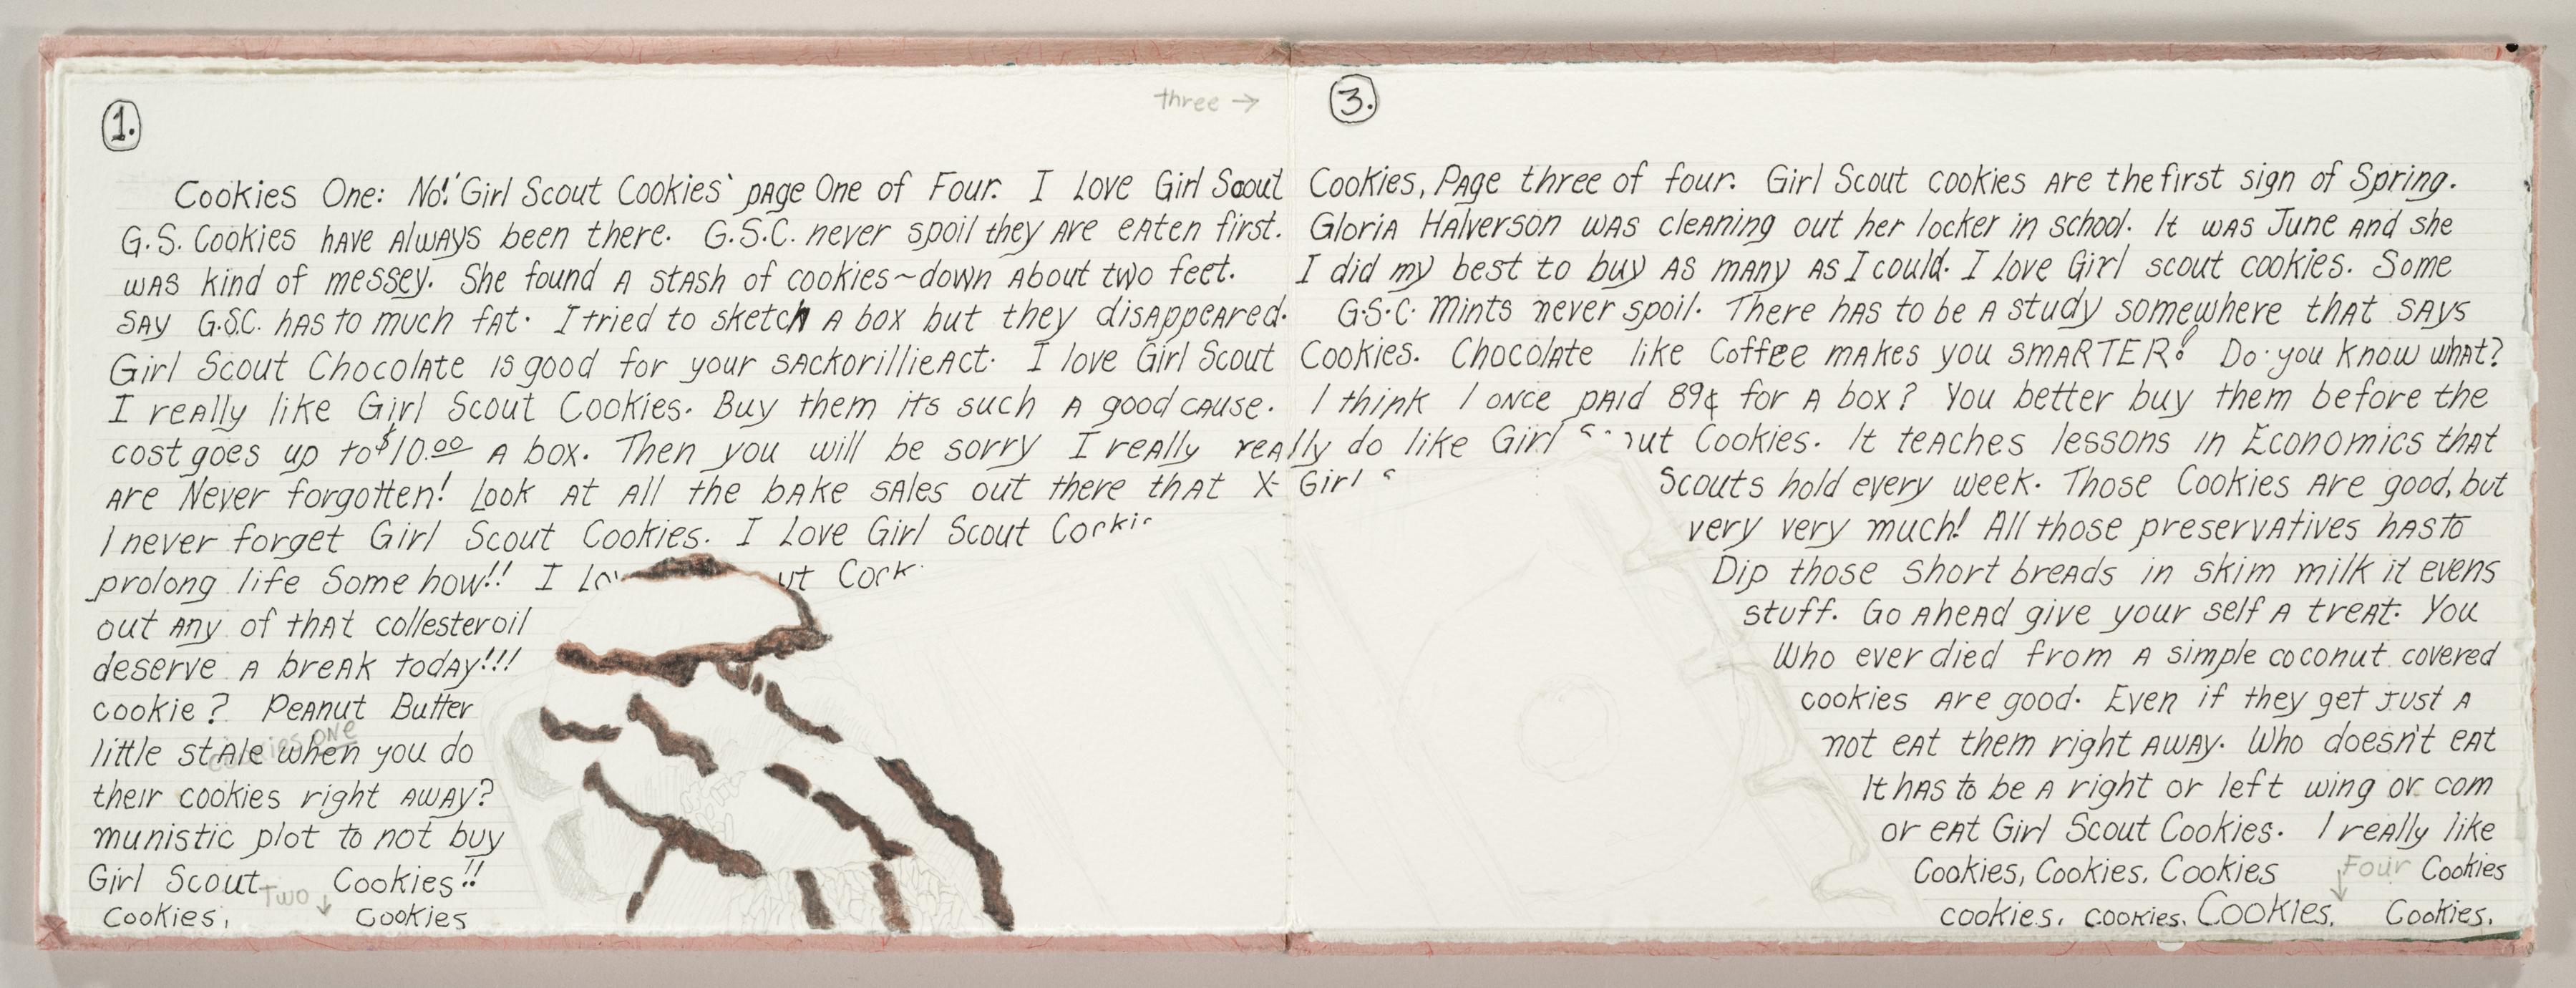 three →
1. 3.
Cookies One: No! 'Girl Scout Cookies' page One of Four. I Love Girl Scout Cookies, Page three of four. Girl Scout cookies are the first sign of Spring.
G.S. Cookies have always been there. G.S.C. never spoil they are eaten first. Gloria Halverson was cleaning out her locker in school. It was June and she
was kind of messey. She found a stash of cookies~down about two feet. I did my best to buy as many as I could. I love Girl scout cookies. Some
say G.S.C. has to much fat. I tried to sketch a box but they disappeared. G.S.C. Mints never spoil. There has to be a study somewhere that says
Girl Scout Chocolate is good for your sackorillieact. I love Girl Scout Cookies. Chocolate like Coffee makes you SMARTER! Do you know what?
I really like Girl Scout Cookies. Buy them its such a good cause. I think I once paid 89¢ for a box? You better buy them before the
cost goes up to $10.00 a box. Then you will be sorry I really really do like Girl ut Cookies. It teaches lessons in Economics that
are Never forgotten! Look at all the bake sales out there that X- Girl S Scouts hold every week. Those Cookies are good, but
I never forget Girl Scout Cookies. I Love Girl Scout Cookie very very much! All those preservatives has to
prolong life Some how!! I Lov ut Cook Dip those short breads in skim milk it evens
out any of that collesteroil stuff. Go ahead give your self a treat. You
deserve a break today!!! Who ever died from a simple coconut covered
cookie? Peanut Butter cookies are good. Even if they get just a
cookies one
little stale when you do not eat them right away. Who doesn't eat
their cookies right away? It has to be a right or left wing or com
munistic plot to not buy or eat Girl Scout Cookies. I really like
Girl Scout Cookies!! Cookies, Cookies, Cookies Four Cookies
Two ↓
Cookies, Cookies cookies, cookies. Cookies, Cookies.